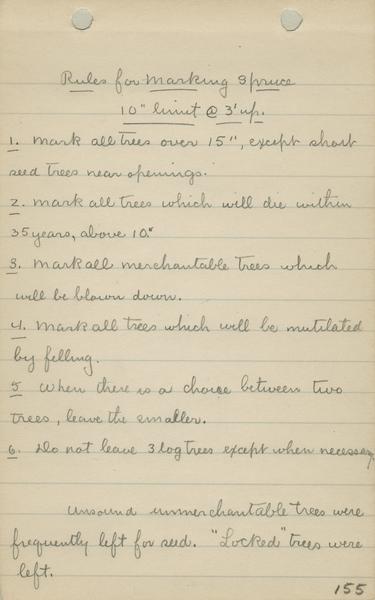 Rules for Marking Spruce
10" limit @ 3' up.
1. Mark all trees over 15", except short
seed trees near openings.
2. Mark all trees which will die within
35 years, above 10."
3. Mark all merchantable trees which
will be blown down.
4. Mark all trees which will be mutilated
by felling.
5 When there is a choice between two
trees, leave the smaller.
6. Do not leave 3 log trees except when necessary.
Unsound unmerchantable trees were
frequently left for seed. "Locked" trees were
left.
155